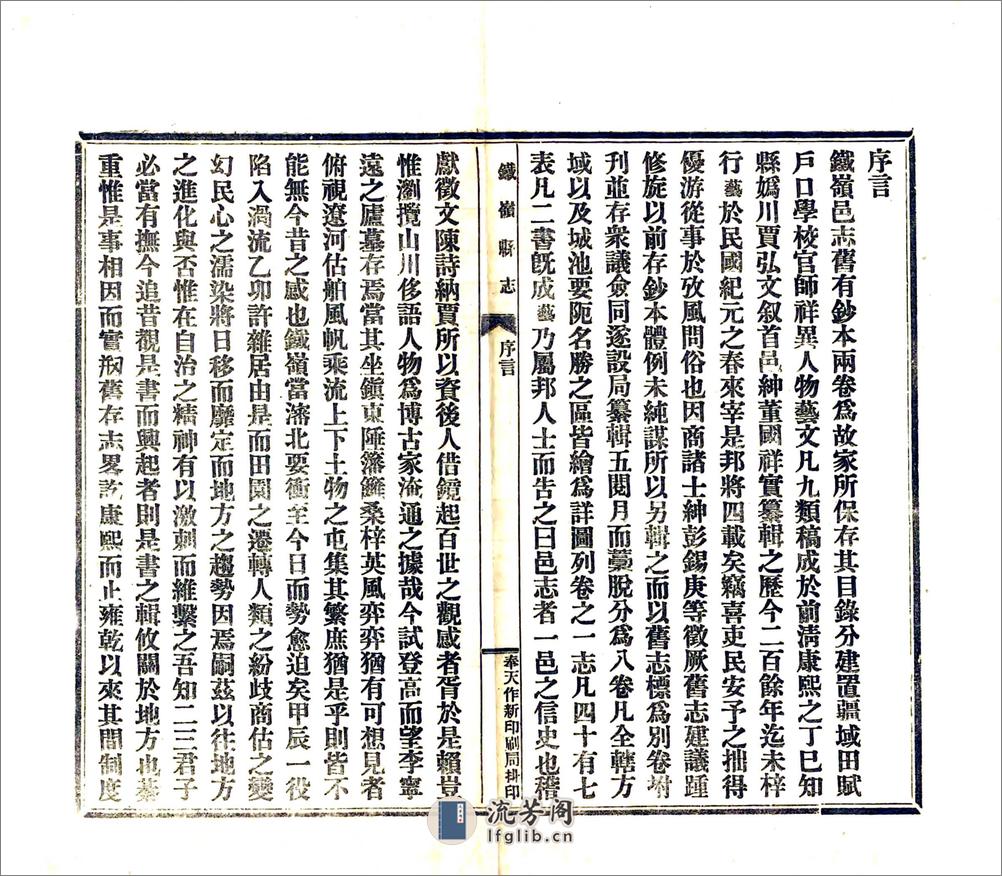 序言
鐵嶺邑志舊有鈔本兩卷爲故家所保存其目錄分建置疆域田賦
戶口學校官師祥異人物藝文凡九類稿成於前淸康熙之丁巳知
縣嬀川賈弘文叙首邑紳董國祥實纂輯之歷今二百餘年迄未梓
行藝於民國紀元之春來宰是邦將四載矣竊喜吏民安予之拙得
優游從事於攷風問俗也因商諸士紳彭錫庚等徵厥舊志建議踵
修旋以前存鈔本體例未純謀所以另輯之而以舊志標爲別卷坿
刋並存衆議僉同遂設局纂輯五閱月而藁脫分爲八卷凡全轄方
域以及城池要阨名勝之區皆繪爲詳圖列卷之一志凡四十有七
表凡二書旣成藝乃屬邦人士而告之曰邑志者一邑之信史也稽
鐵嶺縣志
序言
奉天作新印刷局掛印
獻徵文陳詩納賈所以資後人借鏡起百世之觀感者胥於是賴豈
惟瀏攬山川侈語人物爲博古家淹通之據哉今試登高而望李寧
遠之廬墓存焉當其坐鎭東陲藩籬桑梓英風弈弈猶有可想見者
俯視遼河估舶風帆乘流上下土物之屯集其繁庶猶是乎則皆不
能無今昔之感也鐵嶺當瀋北要衝至今日而勢愈迫矣甲辰一役
陷入渦流乙卯許雜居由是而田園之遷轉人類之紛歧商估之變
幻民心之濡染將日移而靡定而地方之趨勢因焉嗣茲以往地方
之進化與否惟在自治之精神有以激刺而維繫之吾知二三君子
必當有撫今追昔觀是書而興起者則是書之輯攸關於地方也綦
重惟是事相因而實剏舊存志畧訖康熙而止雍乾以來其間制度
流芳阁
lfglib.cn